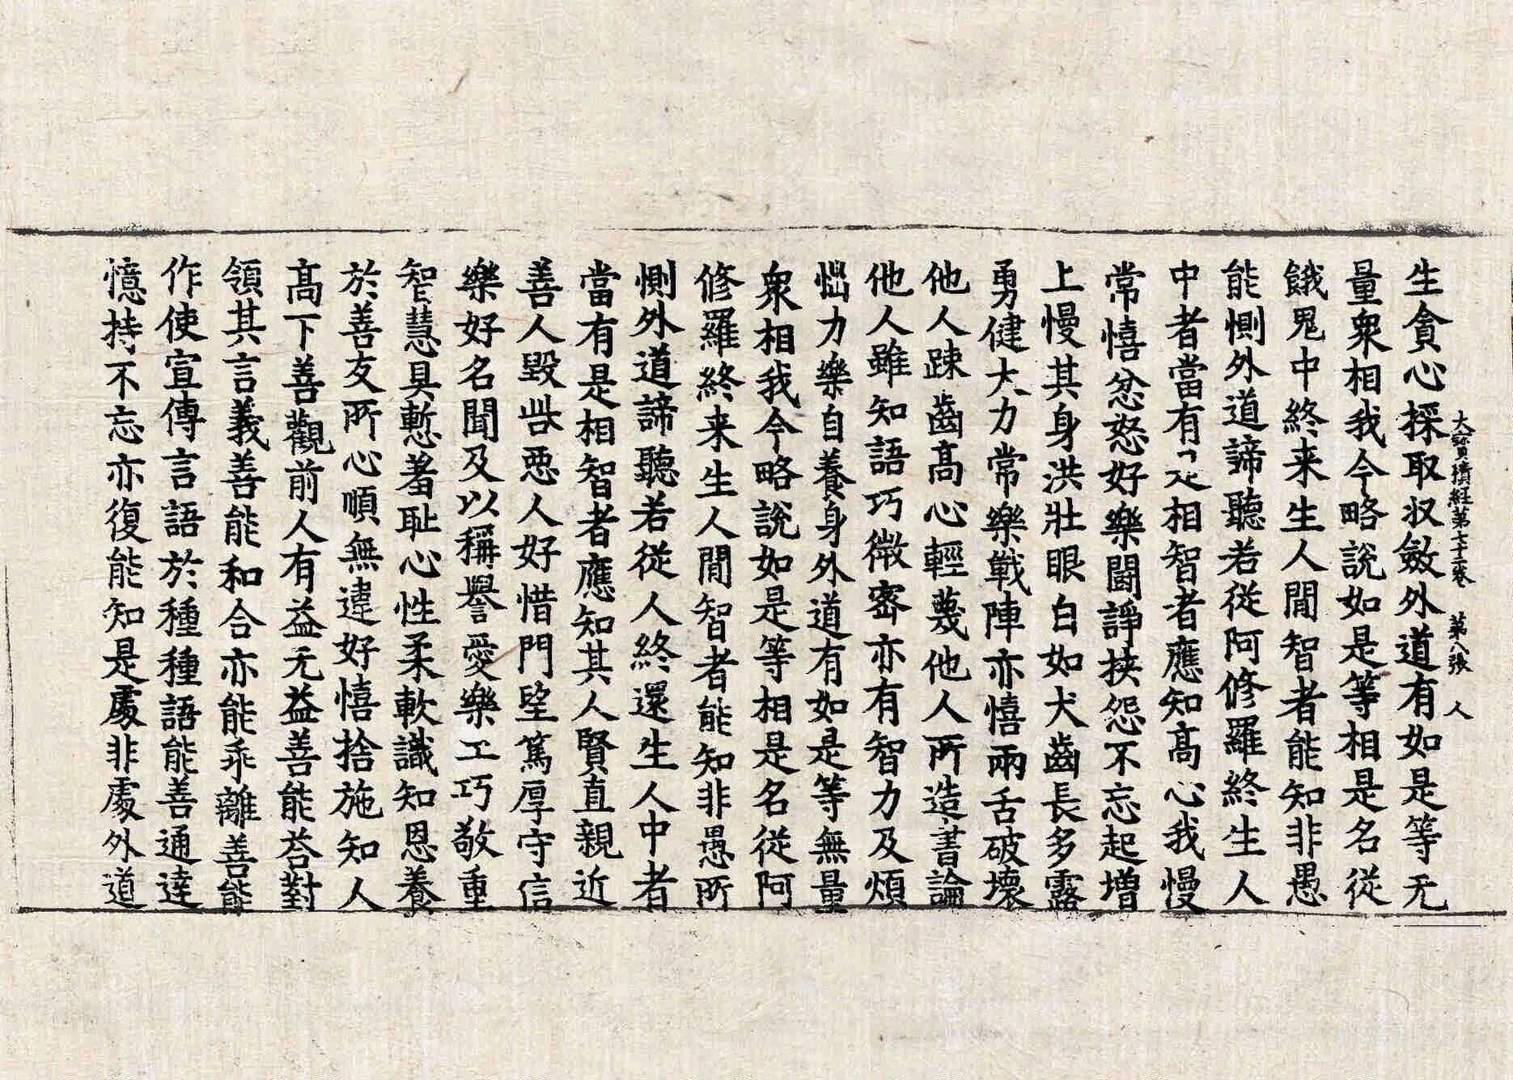 大寶積經第七十二卷 第八張 人
生貪心採取収斂外道有如是等无
量衆相我今略說如是等相是名從
餓鬼中終来生人閒智者能知非愚
能惻外道諦聽若從阿修羅終生人
中者當有是相智者應知高心我慢
常憘忿怒好樂鬪諍挾怨不忘起增
上慢其身洪壯眼白如犬齒長多露
勇健大力常樂戰陣亦憘兩舌破壞
他人踈齒高心輕蔑他人所造書論
他人雖知語巧微密亦有智力及煩
惱力樂自養身外道有如是等無量
衆相我今略說如是等相是名從阿
修羅終来生人閒智者能知非愚所
惻外道諦聽若從人終還生人中者
當有是相智者應知其人賢直親近
善人毀呰惡人好惜門望篤厚守信
樂好名聞及以稱譽愛樂工巧敬重
智慧具慙羞耻心性柔軟識知恩養
於善友所心順無違好憘捨施知人
高下善觀前人有益无益善能荅對
領其言義善能和合亦能乖離善能
作使宣傳言語於種種語能善通達
憶持不忘亦復能知是處非處外道